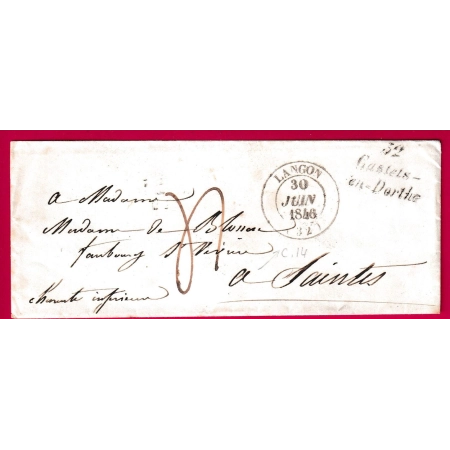 32
Castets-
en-Dorthe
LANGON
30
JUIN
1846
(32)
C.14
a Madame
Madame de Blossac
faubourg St Vivien
a Saintes
Charente inférieure